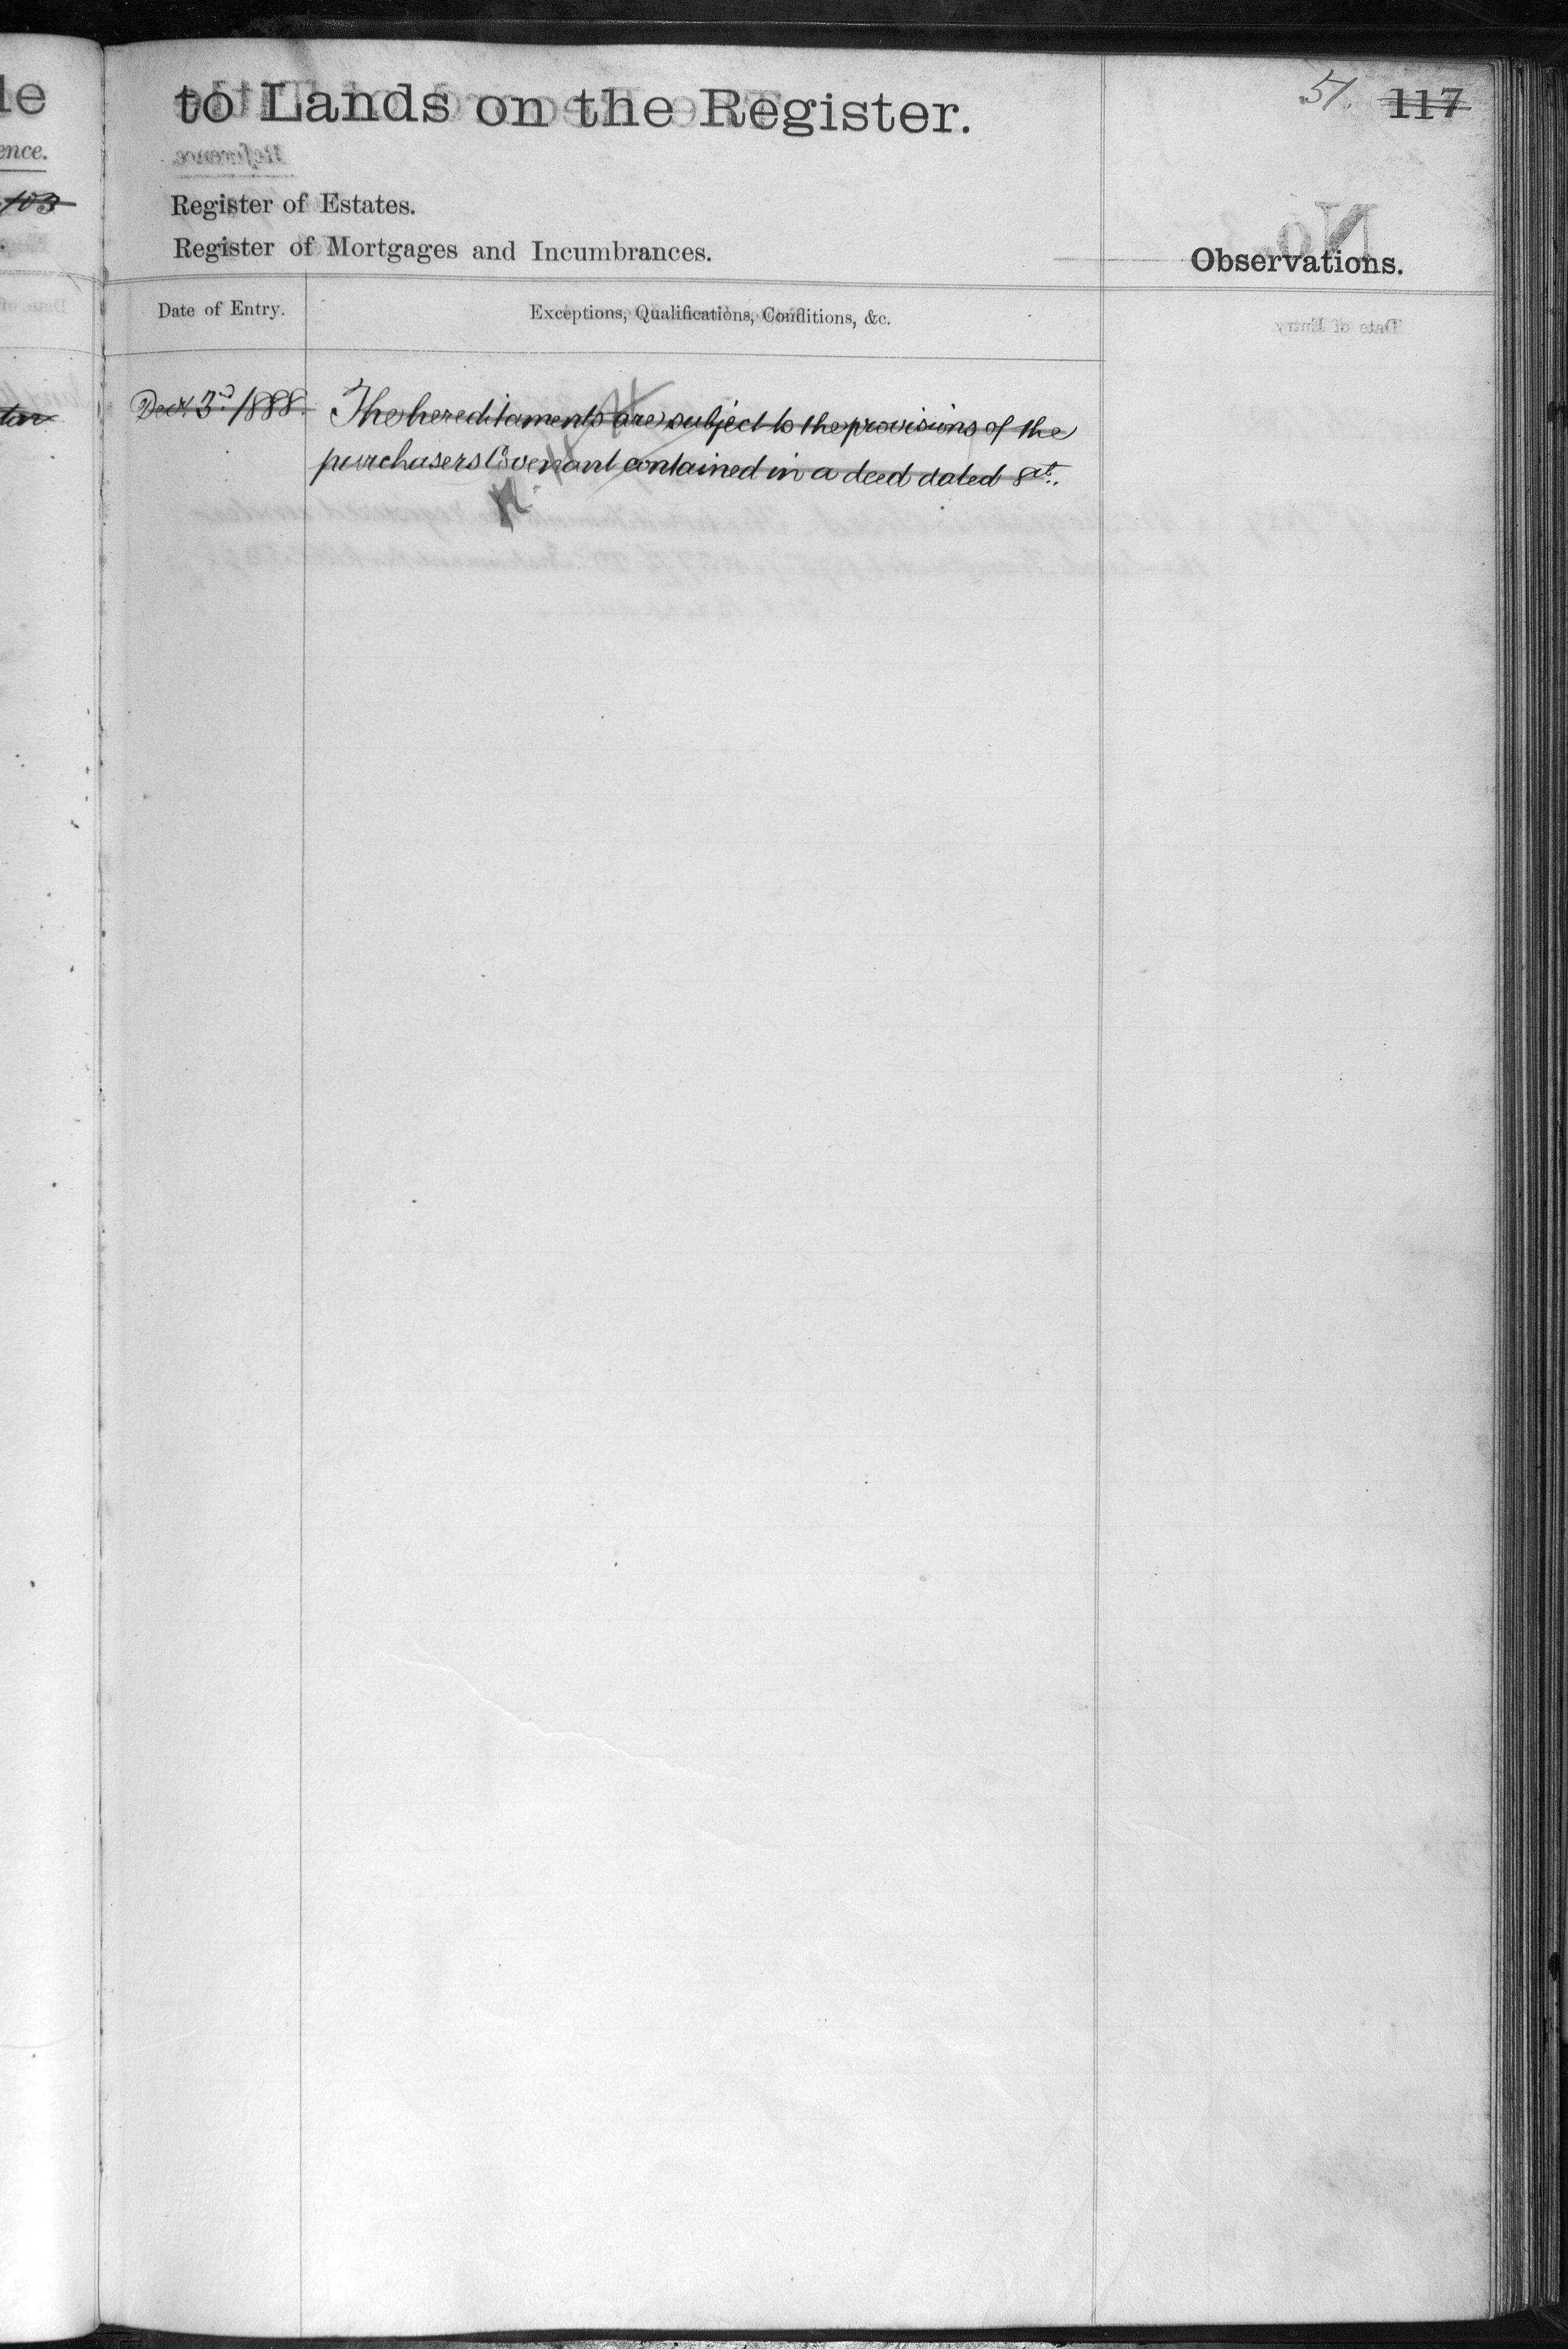 le
ence.
103
to Lands on the Register.
51. 117
Reference.
Register of Estates.
Register of Mortgages and Incumbrances.
No.
Observations.
Date of Entry.
Exceptions, Qualifications, Conditions, &c.
Date of Entry
Decr. 3rd 1888.
The hereditaments are subject to the provisions of the
purchasers Covenant contained in a deed dated 8